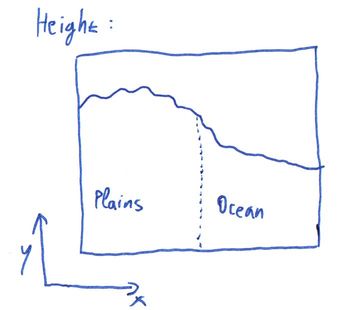 Height :
Plains
Ocean
y
x